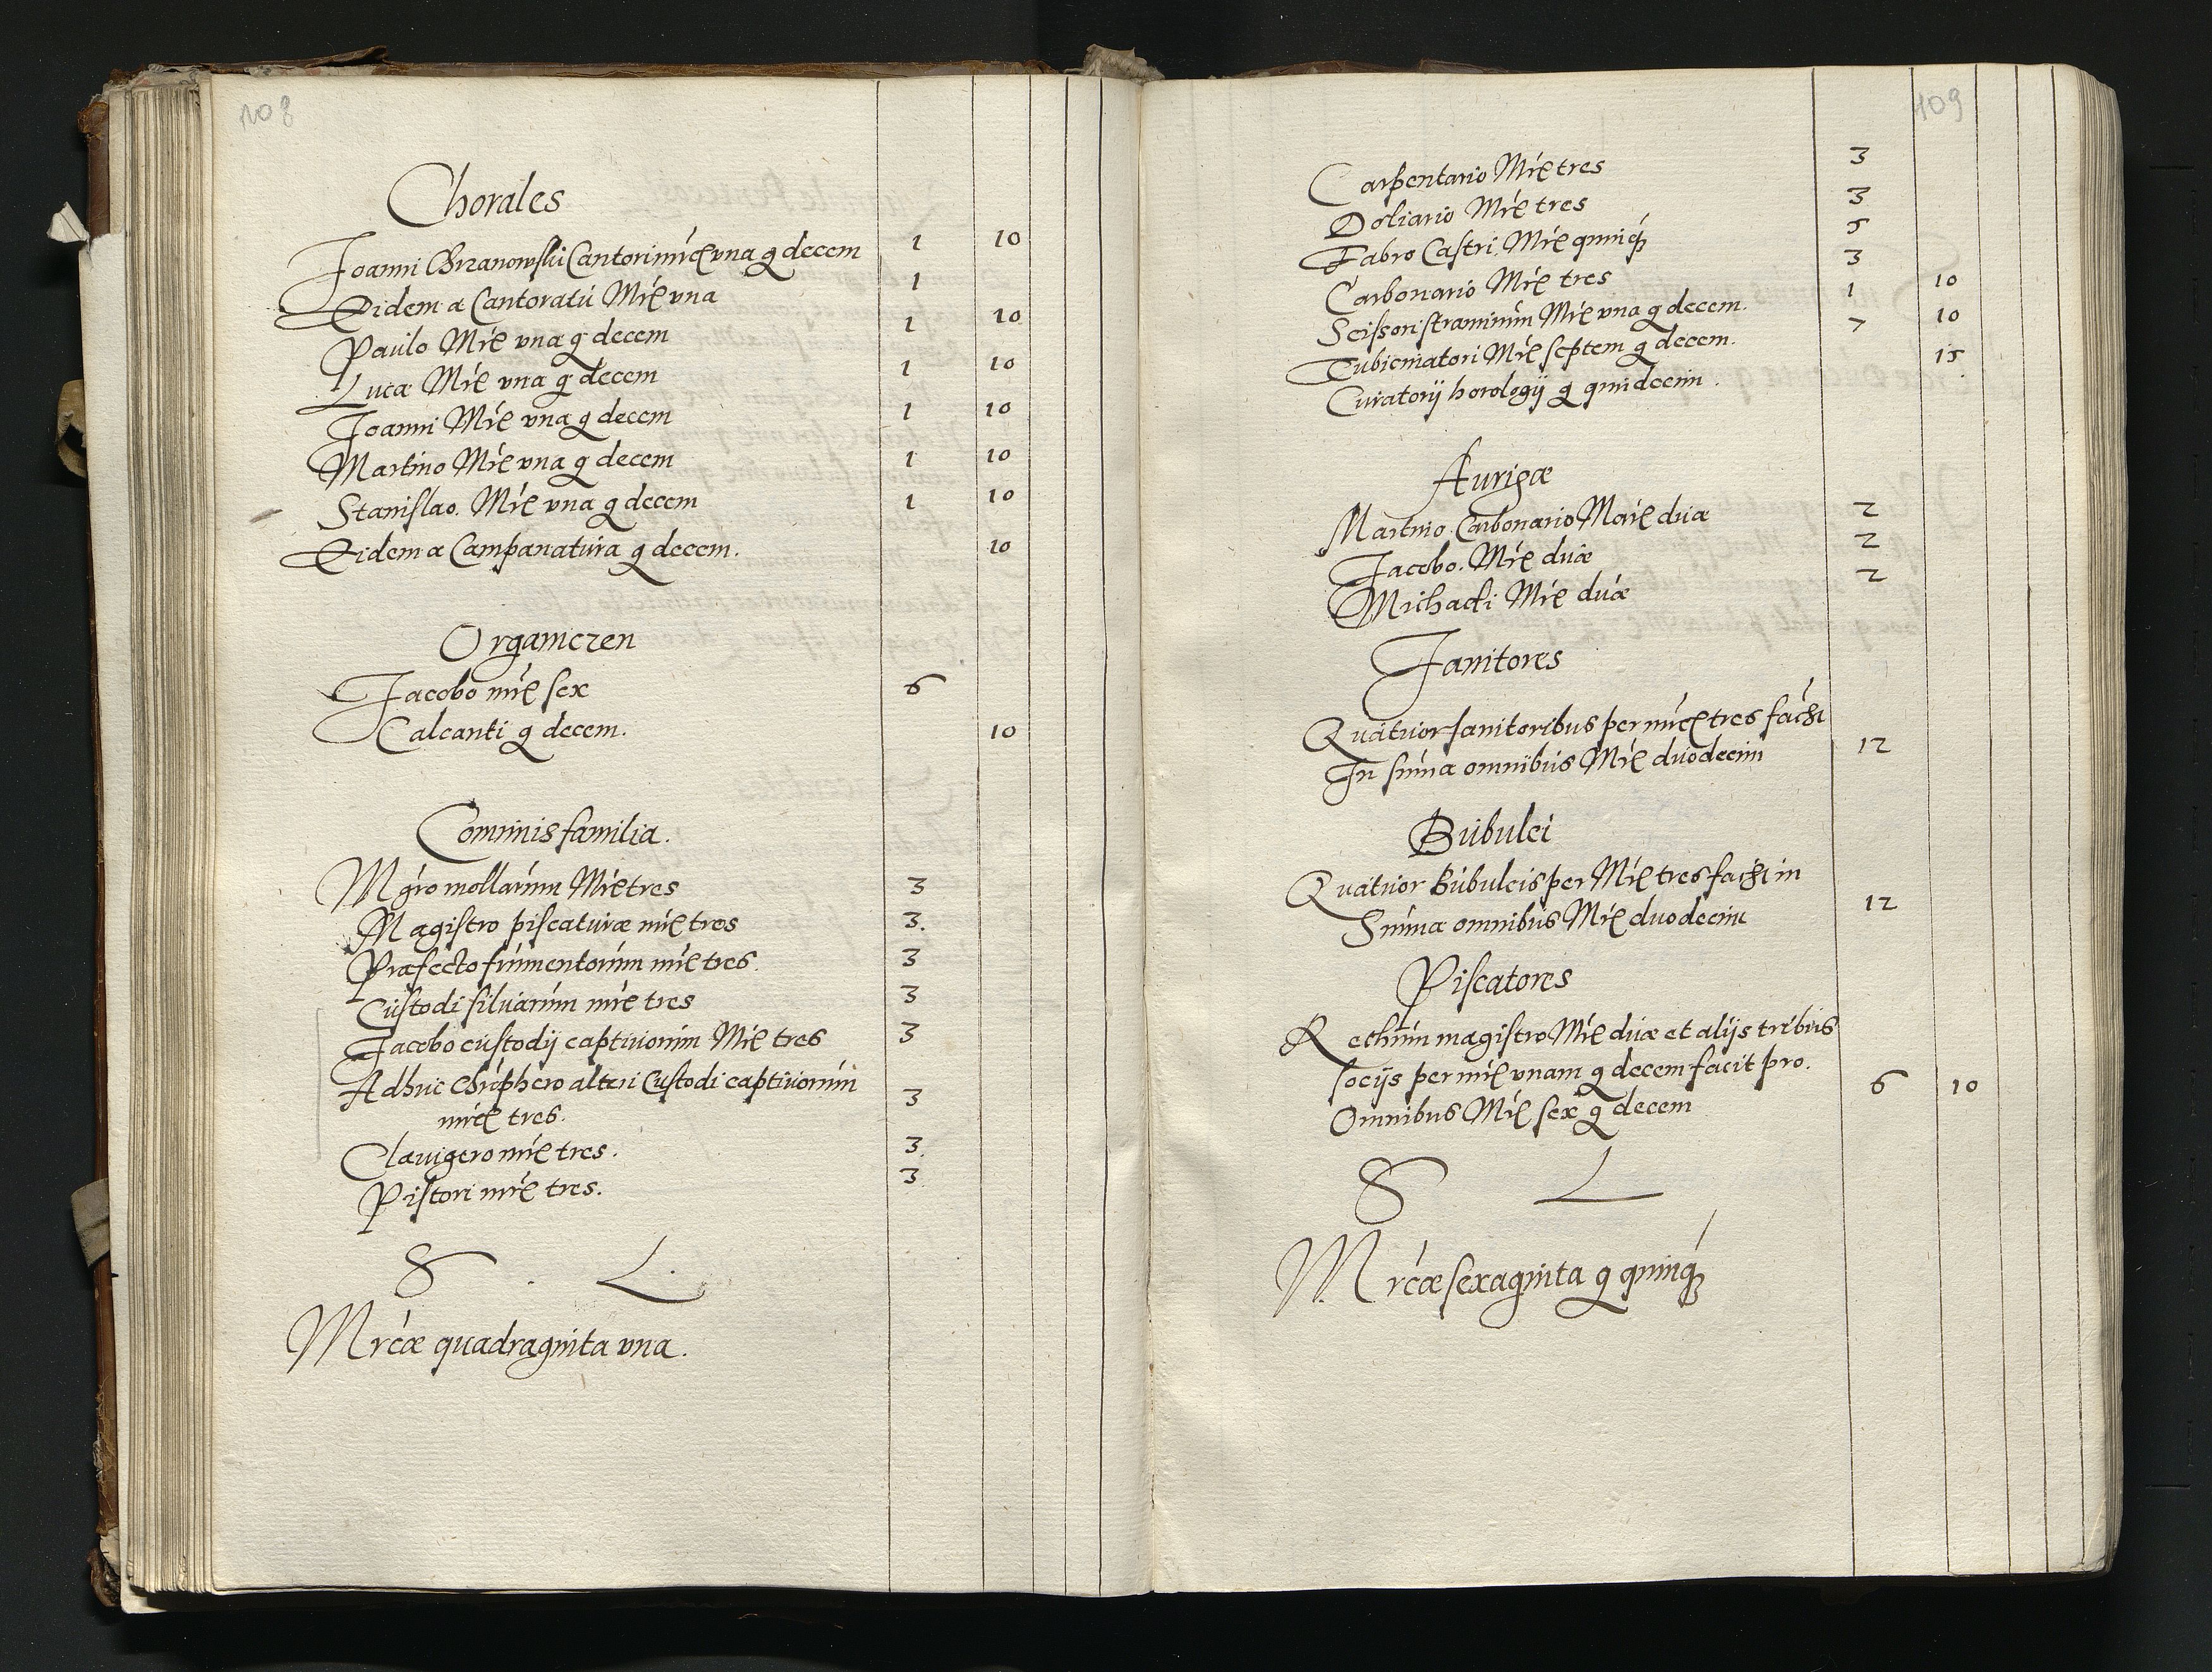 108
Chorales
Joanni Chrzanowski Cantori mrć una g decem 1 10
Eidem a Cantoratu Mrć una 1
Paulo Mrć una g decem 1 10
Lucæ Mrć una g decem 1 10
Joanni Mrć una g decem 1 10
Martino Mrć una g decem 1 10
Stanislao. Mrć una g decem 1 10
Eidem a Campanatura g decem. 10
Organiczen
Jacobo mrć sex 6
Calcanti g decem. 10
Communis familia.
Mgro mollarum Mrć tres 3
Magistro piscaturæ mrć tres 3.
Præfecto frumentorum mrć tres. 3
Custodi silvarum mrć tres 3
Jacobo custodij captivorum Mrć tres 3
Adhuc Chrophero alteri Custodi captivorum
mrć tres. 3
Clavigero mrć tres. 3
Pistori mrć tres. 3
S. L.
Mrcæ quadraginta una.
109
Carpentario Mrć tres 3
Doliario Mrć tres 3
Fabro Castri Mrć quinq 5
Carbonario Mrć tres 3
Scissori straminum Mrć una g decem. 1 10
Tubicinatori Mrć septem g decem. 7 10
Curatorij horologij g quindecim. 15
Aurigæ
Martino. Carbonario Mrć duæ 2
Jacobo. Mrć duæ 2
Michaeli Mrć duæ 2
Janitores
Quatuor Janitoribus per mrć tres facit
In suma omnibus Mrć duodecim 12
Bubulci
Quatuor Bubulcis per Mrć tres facit in
Suma omnibus Mrć duodecim 12
Piscatores
Rethium magistro Mrć duæ et alijs tribus
socijs per mrć unam g decem facit pro.
Omnibus Mrć sex g decem 6 10
S L
Mrcæ sexaginta g quinq